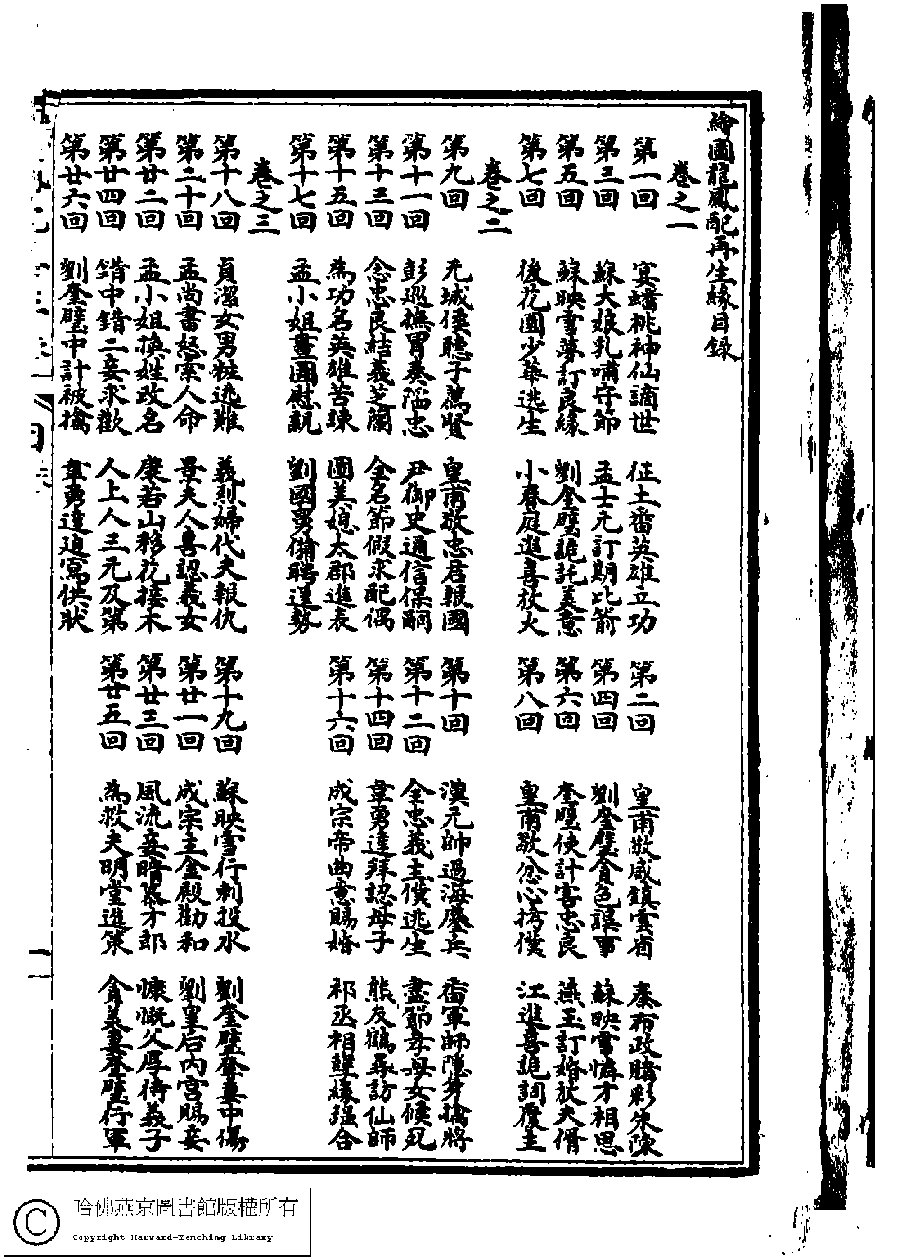 繪圖龍鳳配再生緣目錄
卷之一
第一回 宴蟠桃神仙謫世 征土番英雄立功 第二回 皇甫敬威鎮雲省 秦布政賭彩朱陳
第三回 蘇大娘乳哺守節 孟士元訂期比箭 第四回 劉奎璧貪色謀事 蘇映雪憐才相思
第五回 蘇映雪夢訂良緣 劉奎璧詭託美意 第六回 奎璧使計害忠良 燕玉訂婚於夫僧
第七回 後花園少華逃生 小春庭進喜放火 第八回 皇甫敬忿心拷僕 江進喜詭詞覆主
卷之二
第九回 元城侯聽子薦賢 皇甫敬忠君報國 第十回 漢元帥過海鏖兵 番軍師隱身擒將
第十一回 彭巡撫冒奏陷忠 尹御史通信保嗣 第十二回 全忠義主僕逃生 盡節孝母女候死
第十三回 念忠良結義芝蘭 全名節假求配偶 第十四回 韋勇達拜認母子 熊友鶴尋訪仙師
第十五回 為功名英雄苦諫 圖美媳太郡進表 第十六回 成宗帝曲意賜婚 祁丞相雙緣強合
第十七回 孟小姐畫圖慰親 劉國舅備聘逞勢
卷之三
第十八回 貞潔女男粧逃難 義烈婦代夫報仇 第十九回 蘇映雪行刺投水 劉奎璧登車中傷
第二十回 孟尚書怒索人命 景夫人喜認義女 第廿一回 成宗主金殿勸和 劉皇后內宮賜妾
第廿二回 孟小姐換姓改名 康若山移花接木 第廿三回 風流妾暗慕才郎 慷慨父厚待義子
第廿四回 錯中錯二妾求歡 人上人三元及第 第廿五回 為救夫明堂進策 貪美妻奎璧行軍
第廿六回 劉奎璧中計被擒 韋勇達迫寫供狀
一
哈佛燕京圖書館版權所有
Copyright Harvard-Yenching Library